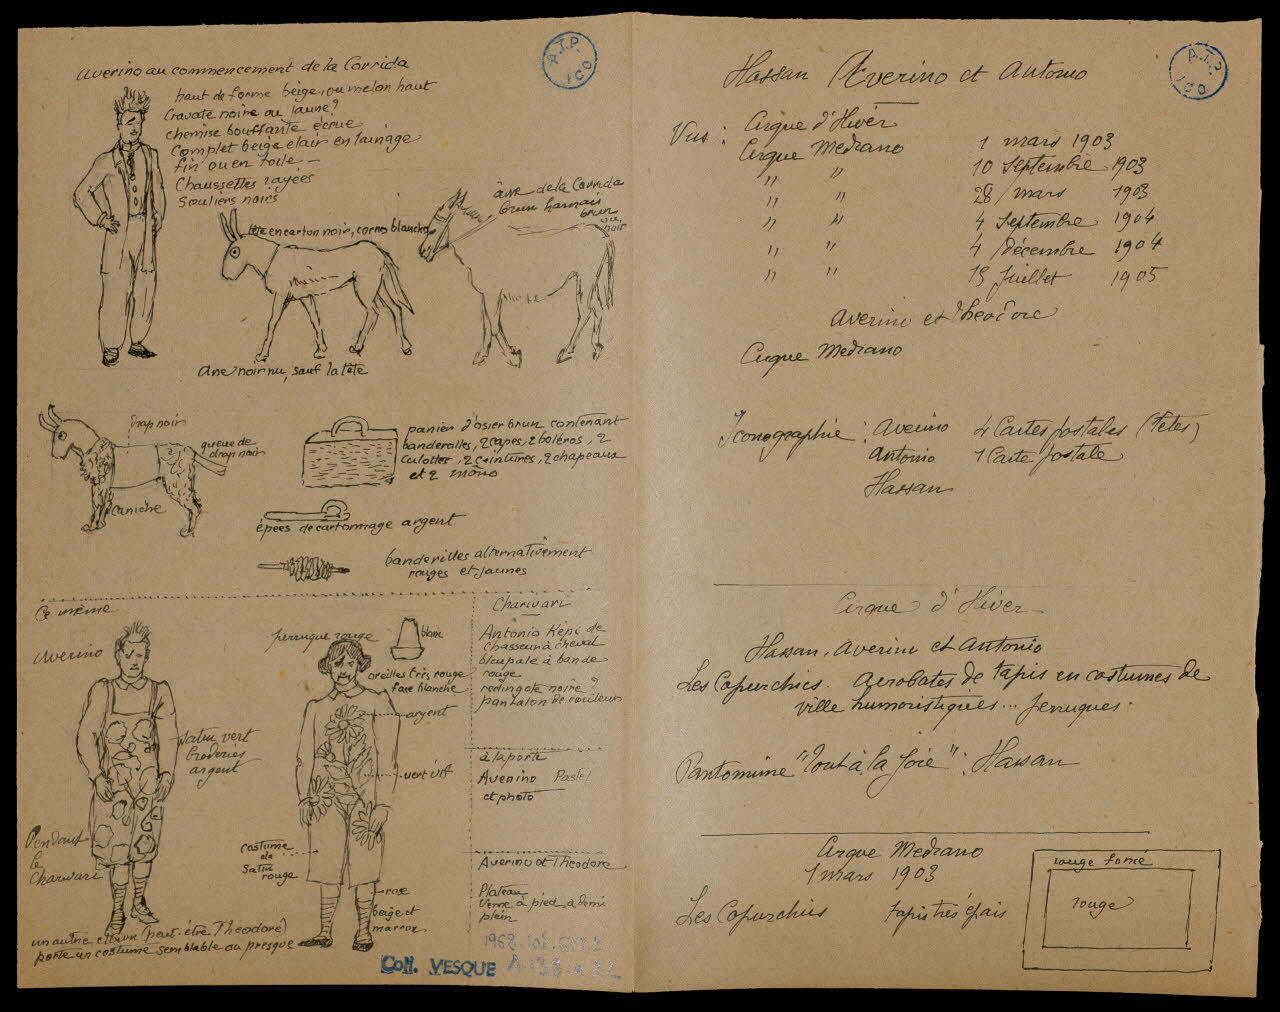 Averino au commencement de la Corrida
haut de forme beige, ou melon haut
Cravate noire ou jaune?
chemise bouffante écrue
Complet beige clair en lainage
fin ou en toile —
Chaussettes rayées
Souliers noirs
tête en carton noir, cornes blanches
âne de la Corrida
brun harnais
brun
ou
noir
Ane noir nu, sauf la tête
drap noir
queue de
drap noir
Caniche
panier d'osier brun contenant
banderilles, 2 capes, 2 boléros, 2
culottes, 2 ceintures, 2 chapeaux
et 2 
épées de cartonnage argent
banderilles alternativement
rouges et jaunes
Ce même
Averino
satin vert
broderies
argent
Pendant
le
Charivari
un autre clown (peut-être Théodore)
porte un costume semblable ou presque
perruque rouge
blanc
oreilles très rouge
face blanche
argent
vert vif
costume
de
Satin
rouge
rose
beige et
marron
Charivari
Antonio Képi de
chasseur à cheval
bleu pâle à bande
rouge
redingote noire?
pantalon de couleur
à la porte
Averino Pastel
et photo
Averino et Théodore
Plateau
Verre à pied à demi
plein
Coll. VESQUE
A.T.P.
100
Hassan Averino et Antonio
Vus : Cirque d'Hiver
Cirque Medrano 1 mars 1903
" " 10 Septembre 1903
" " 28 mars 1903
" " 4 Septembre 1904
" " 4 décembre 1904
" " 15 Juillet 1905
Averino et Théodore
Cirque Medrano
Iconographie : Averino 4 Cartes postales (têtes)
Antonio 1 Carte postale
Hassan
Cirque d'Hiver
Hassan, Averino et Antonio
Les Capurchics. Acrobates de tapis en costumes de
ville humoristiques... perruques.
Pantomime "Tout à la Joie". Hassan
Cirque Medrano
1 mars 1903
Les Capurchics tapis très épais
rouge foncé
rouge
A.T.P.
100